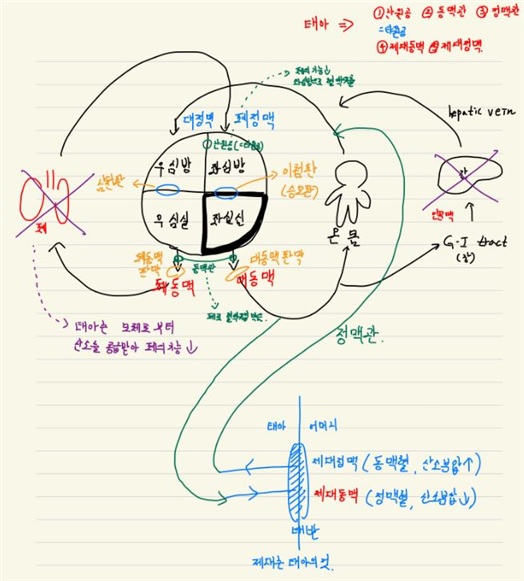 태아 => ①난원공 ② 동맥관 ③ 정맥관
=타원공
④제대동맥 ⑤제대정맥
폐의 기능↓
hepatic vein
대정맥 폐정맥
난원공(=타원공)
우심방 좌심방
삼첨판
이첨판
(승모판)
우심실 좌심실
폐
간
간문맥
온몸
G-I tract
(장)
폐동맥
판막
동맥관
대동맥 판막
폐동맥 대동맥
태아는 모체로부터
산소를 공급받아 폐의 기능↓
정맥관.
태아 어머니
제대정맥 (동맥혈, 산소분압↑)
제대동맥 (정맥혈, 산소분압↓)
태반
제대는 태아의 것.